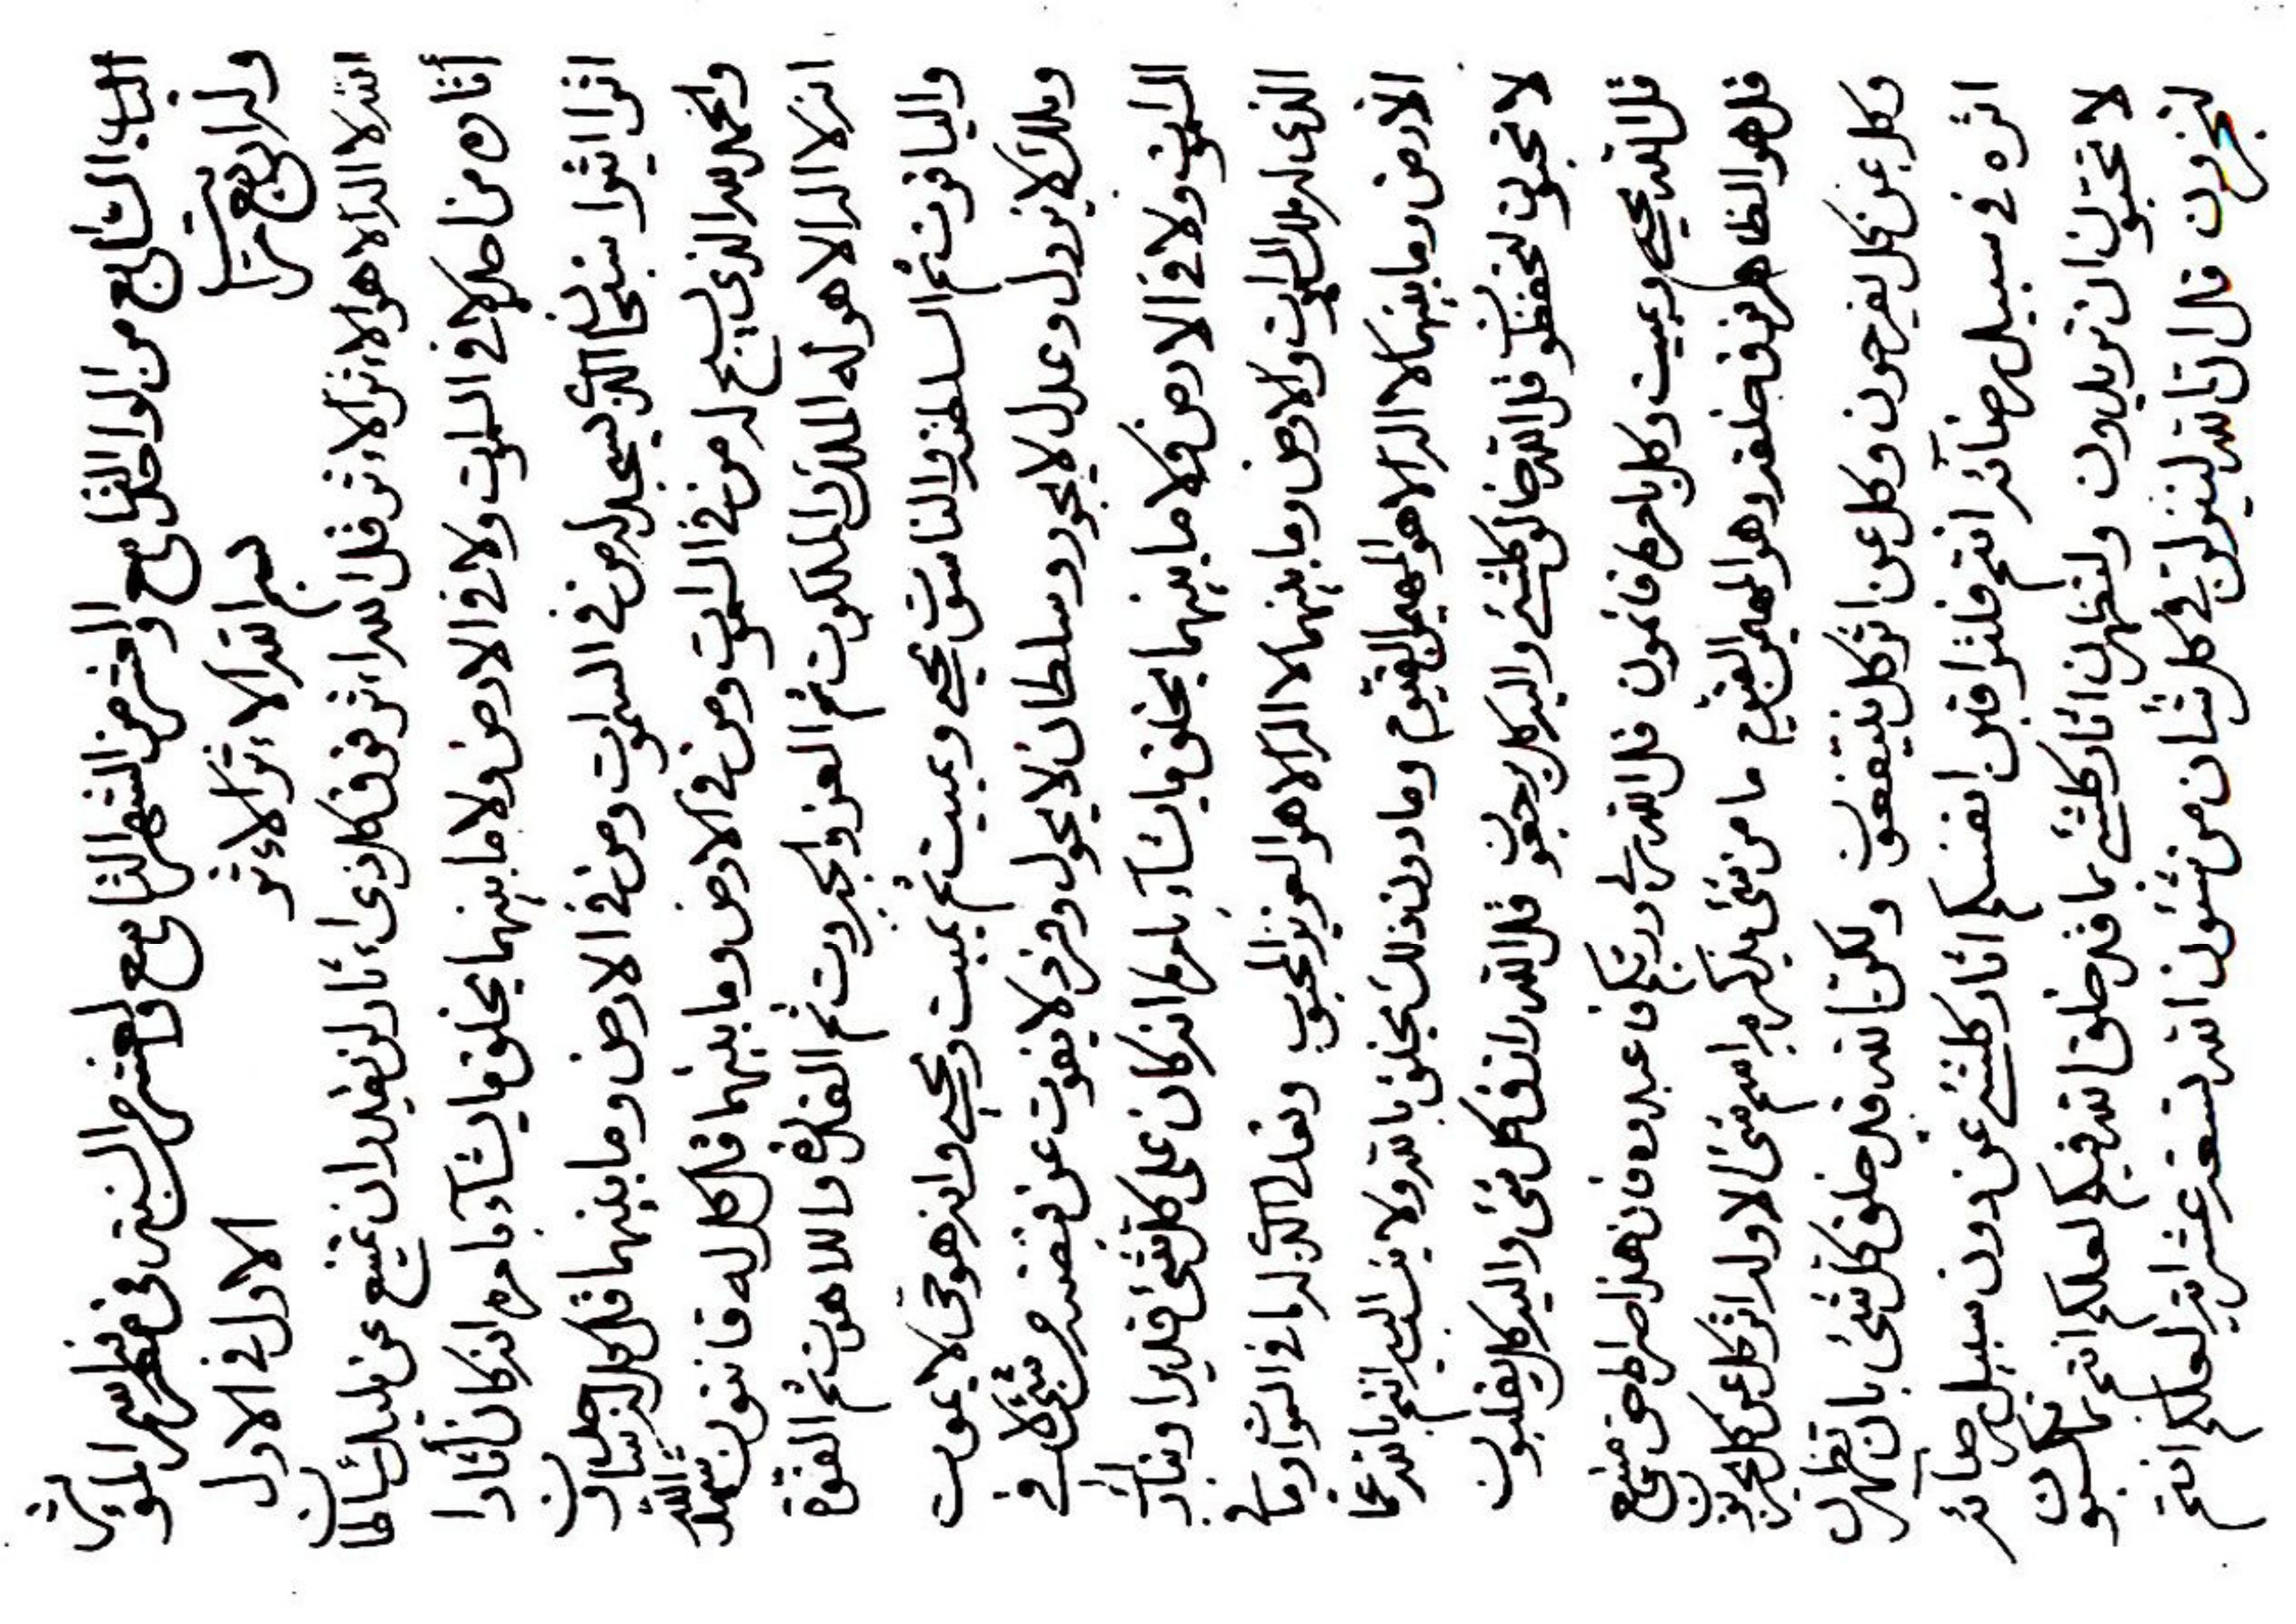 الباب السابع من الواحد التاسع والعشر من الشهر التاسع والعشر من السنة في معرفة اسم المؤثر
وله اربع مراتب الاول في الاول
بسم الله الاءثر الاءثر
الله لا اله الا هو الاءثر الاءثر قل الله اءثر فوق كل ذي اءثار لن يقدر ان يمتنع عن مليك سلطان
أثاره من احد لا في السموات ولا في الارض ولا ما بينهما يخلق ما يشآء بامره انه كان أثارا
اثرا اثيرا سبحان الذي يسجد له من في السموات ومن في الارض وما بينهما قل كل له ساجدون
والحمد لله الذي يسبح له من في السموات ومن في الارض وما بينهما قل كل له قانتون شهد الله
انه لا اله الا هو له الملك والملكوت ثم العز والجبروت ثم القدرة واللاهوت ثم القوة
والياقوت ثم السلطنة والناسوت يحيي ويميت ثم يميت ويحيي وانه هو حي لا يموت
وملك لا يزول وعدل لا يجور وسلطان لا يحول وفرد لا يفوت عن قبضته من شيء لا في
السموات ولا في الارض ولا ما بينهما يخلق ما يشآء بامره انه كان على كل شيء قديرا وتبارك
الذي له ملك السموات والارض وما بينهما لا اله الا هو العزيز المحبوب وتعالى الذي له ما في السموات وما في
الارض وما بينهما لا اله الا هو المهيمن القيوم وما دون ذلك يخلق بالله ولا ينسب اليه انتم بالله عما
لا تحبون لتحفظون قل الله خالق كلشيء واليه كل يرجعون قل الله رازق كل شيء واليه كل يقلبون
قل الله يحيي ويميت وكل بامره قائمون قل الله ربي وربكم فاعبدوه فان هذا صراط حق منيع
قل هو الظاهر فوق خلقه وهو المهيمن القيوم ما من شيء يذكر به اسم شيء الا وله اثر كل عن كل يحزنون
وكل عن كل يفرحون وكل عن اثر كل ينتفعون ولكن الله قد خلق كل شيء بان تظهرن
اثره في سبيل رضائه انتم فلتراقبن انفسكم اثار كلشيء عن دون سبيل رضائه
لا تحبون ان تريدون ولتظهرن اثار كلشيء بما قد خلق الله فيكم لعلكم انتم بما تكسبون
لتجزون قل ان تالله لينزلن في كل شان من شئون الله تسعة عشر اية لعلكم انتم